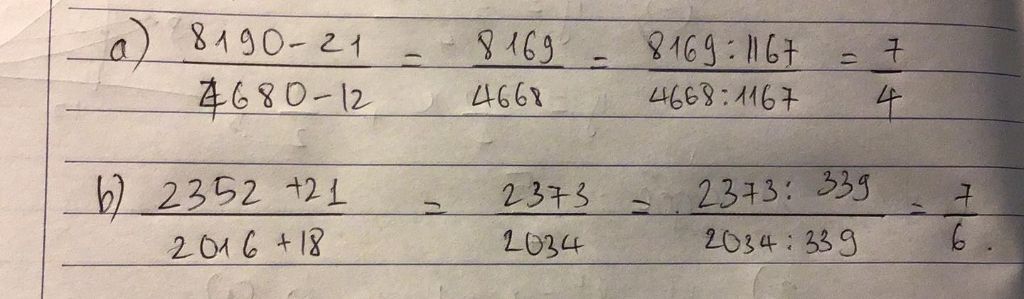 a) 8190-21 / 4680-12 = 8169 / 4668 = 8169:1167 / 4668:1167 = 7 / 4
b) 2352+21 / 2016+18 = 2373 / 2034 = 2373:339 / 2034:339 = 7 / 6.